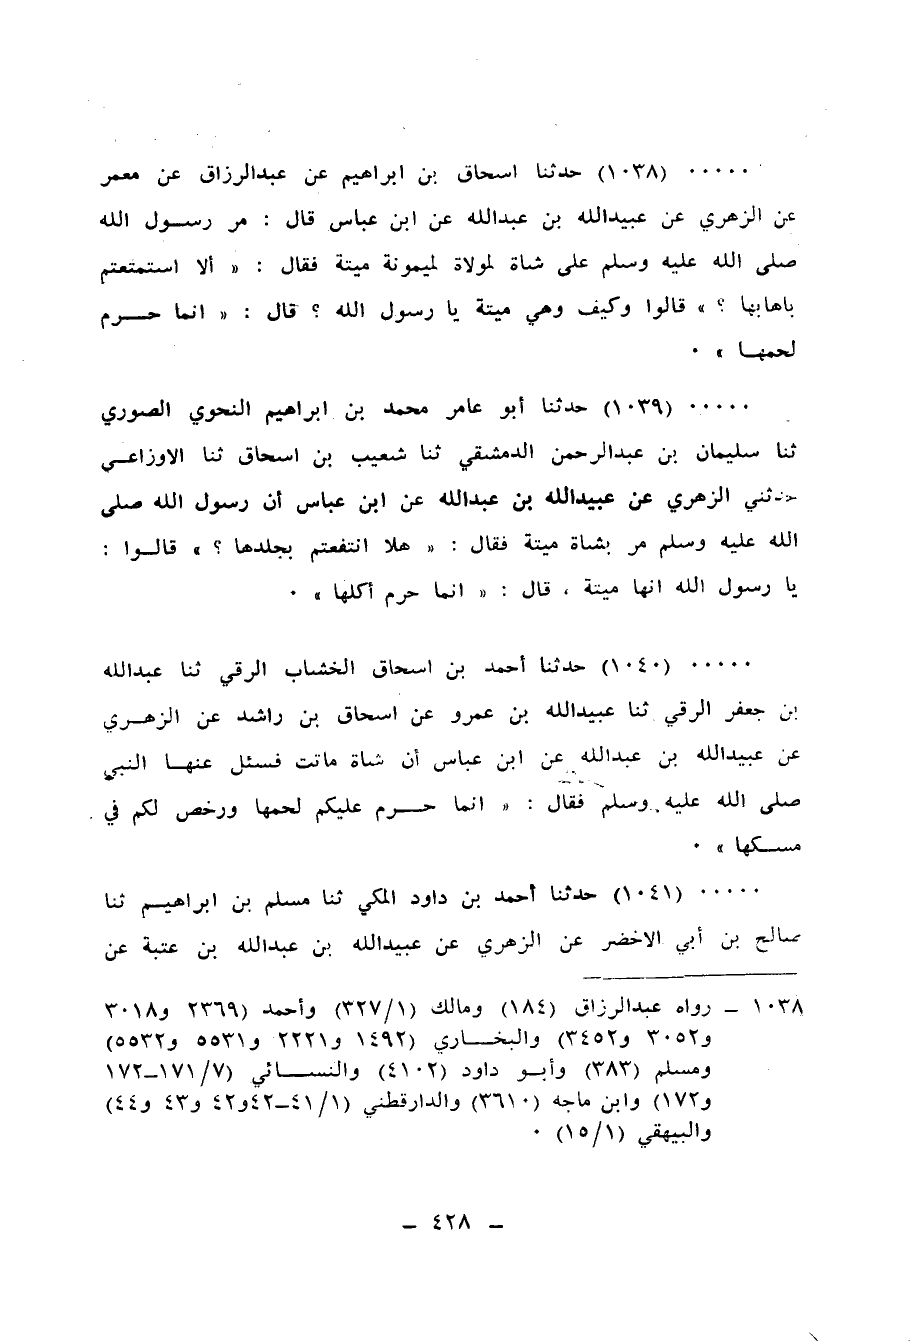 ٠٠٠٠٠ (١٠٣٨) حدثنا اسحاق بن ابراهيم عن عبدالرزاق عن معمر
عن الزهري عن عبيدالله بن عبدالله عن ابن عباس قال : مر رسول الله
صلى الله عليه وسلم على شاة لمولاة لميمونة ميتة فقال : « ألا استمتعتم
باهابها ؟ » قالوا وكيف وهي ميتة يا رسول الله ؟ قال : « انما حرم
لحمها » ٠
٠٠٠٠٠ (١٠٣٩) حدثنا أبو عامر محمد بن ابراهيم النحوي الصوري
ثنا سليمان بن عبدالرحمن الدمشقي ثنا شعيب بن اسحاق ثنا الاوزاعي
حدثني الزهري عن عبيدالله بن عبدالله عن ابن عباس أن رسول الله صلى
الله عليه وسلم مر بشاة ميتة فقال : « هلا انتفعتم بجلدها ؟ » قالوا :
يا رسول الله انها ميتة ، قال : « انما حرم أكلها » ٠
٠٠٠٠٠ (١٠٤٠) حدثنا أحمد بن اسحاق الخشاب الرقي ثنا عبدالله
بن جعفر الرقي ثنا عبيدالله بن عمرو عن اسحاق بن راشد عن الزهري
عن عبيدالله بن عبدالله عن ابن عباس أن شاة ماتت فسئل عنها النبي
صلى الله عليه وسلم فقال : « انما حرم عليكم لحمها ورخص لكم في
مسكها » ٠
٠٠٠٠٠ (١٠٤١) حدثنا أحمد بن داود المكي ثنا مسلم بن ابراهيم ثنا
صالح بن أبي الاخضر عن الزهري عن عبيدالله بن عبدالله بن عتبة عن
١٠٣٨ ـ رواه عبدالرزاق (١٨٤) ومالك (٣٢٧/١) وأحمد (٢٣٦٩ و٣٠١٨
و٣٠٥٢ و٣٤٥٢) والبخاري (١٤٩٢ و٢٢٢١ و٥٥٣١ و٥٥٣٢)
ومسلم (٣٨٣) وأبو داود (٤١٠٢) والنسائي (١٧١/٧ـ١٧٢
و١٧٢) وابن ماجه (٣٦١٠) والدارقطني (٤١/١ـ٤٢و٤٢ و٤٣ و٤٤)
والبيهقي (١٥/١) ٠
ـ ٤٢٨ ـ